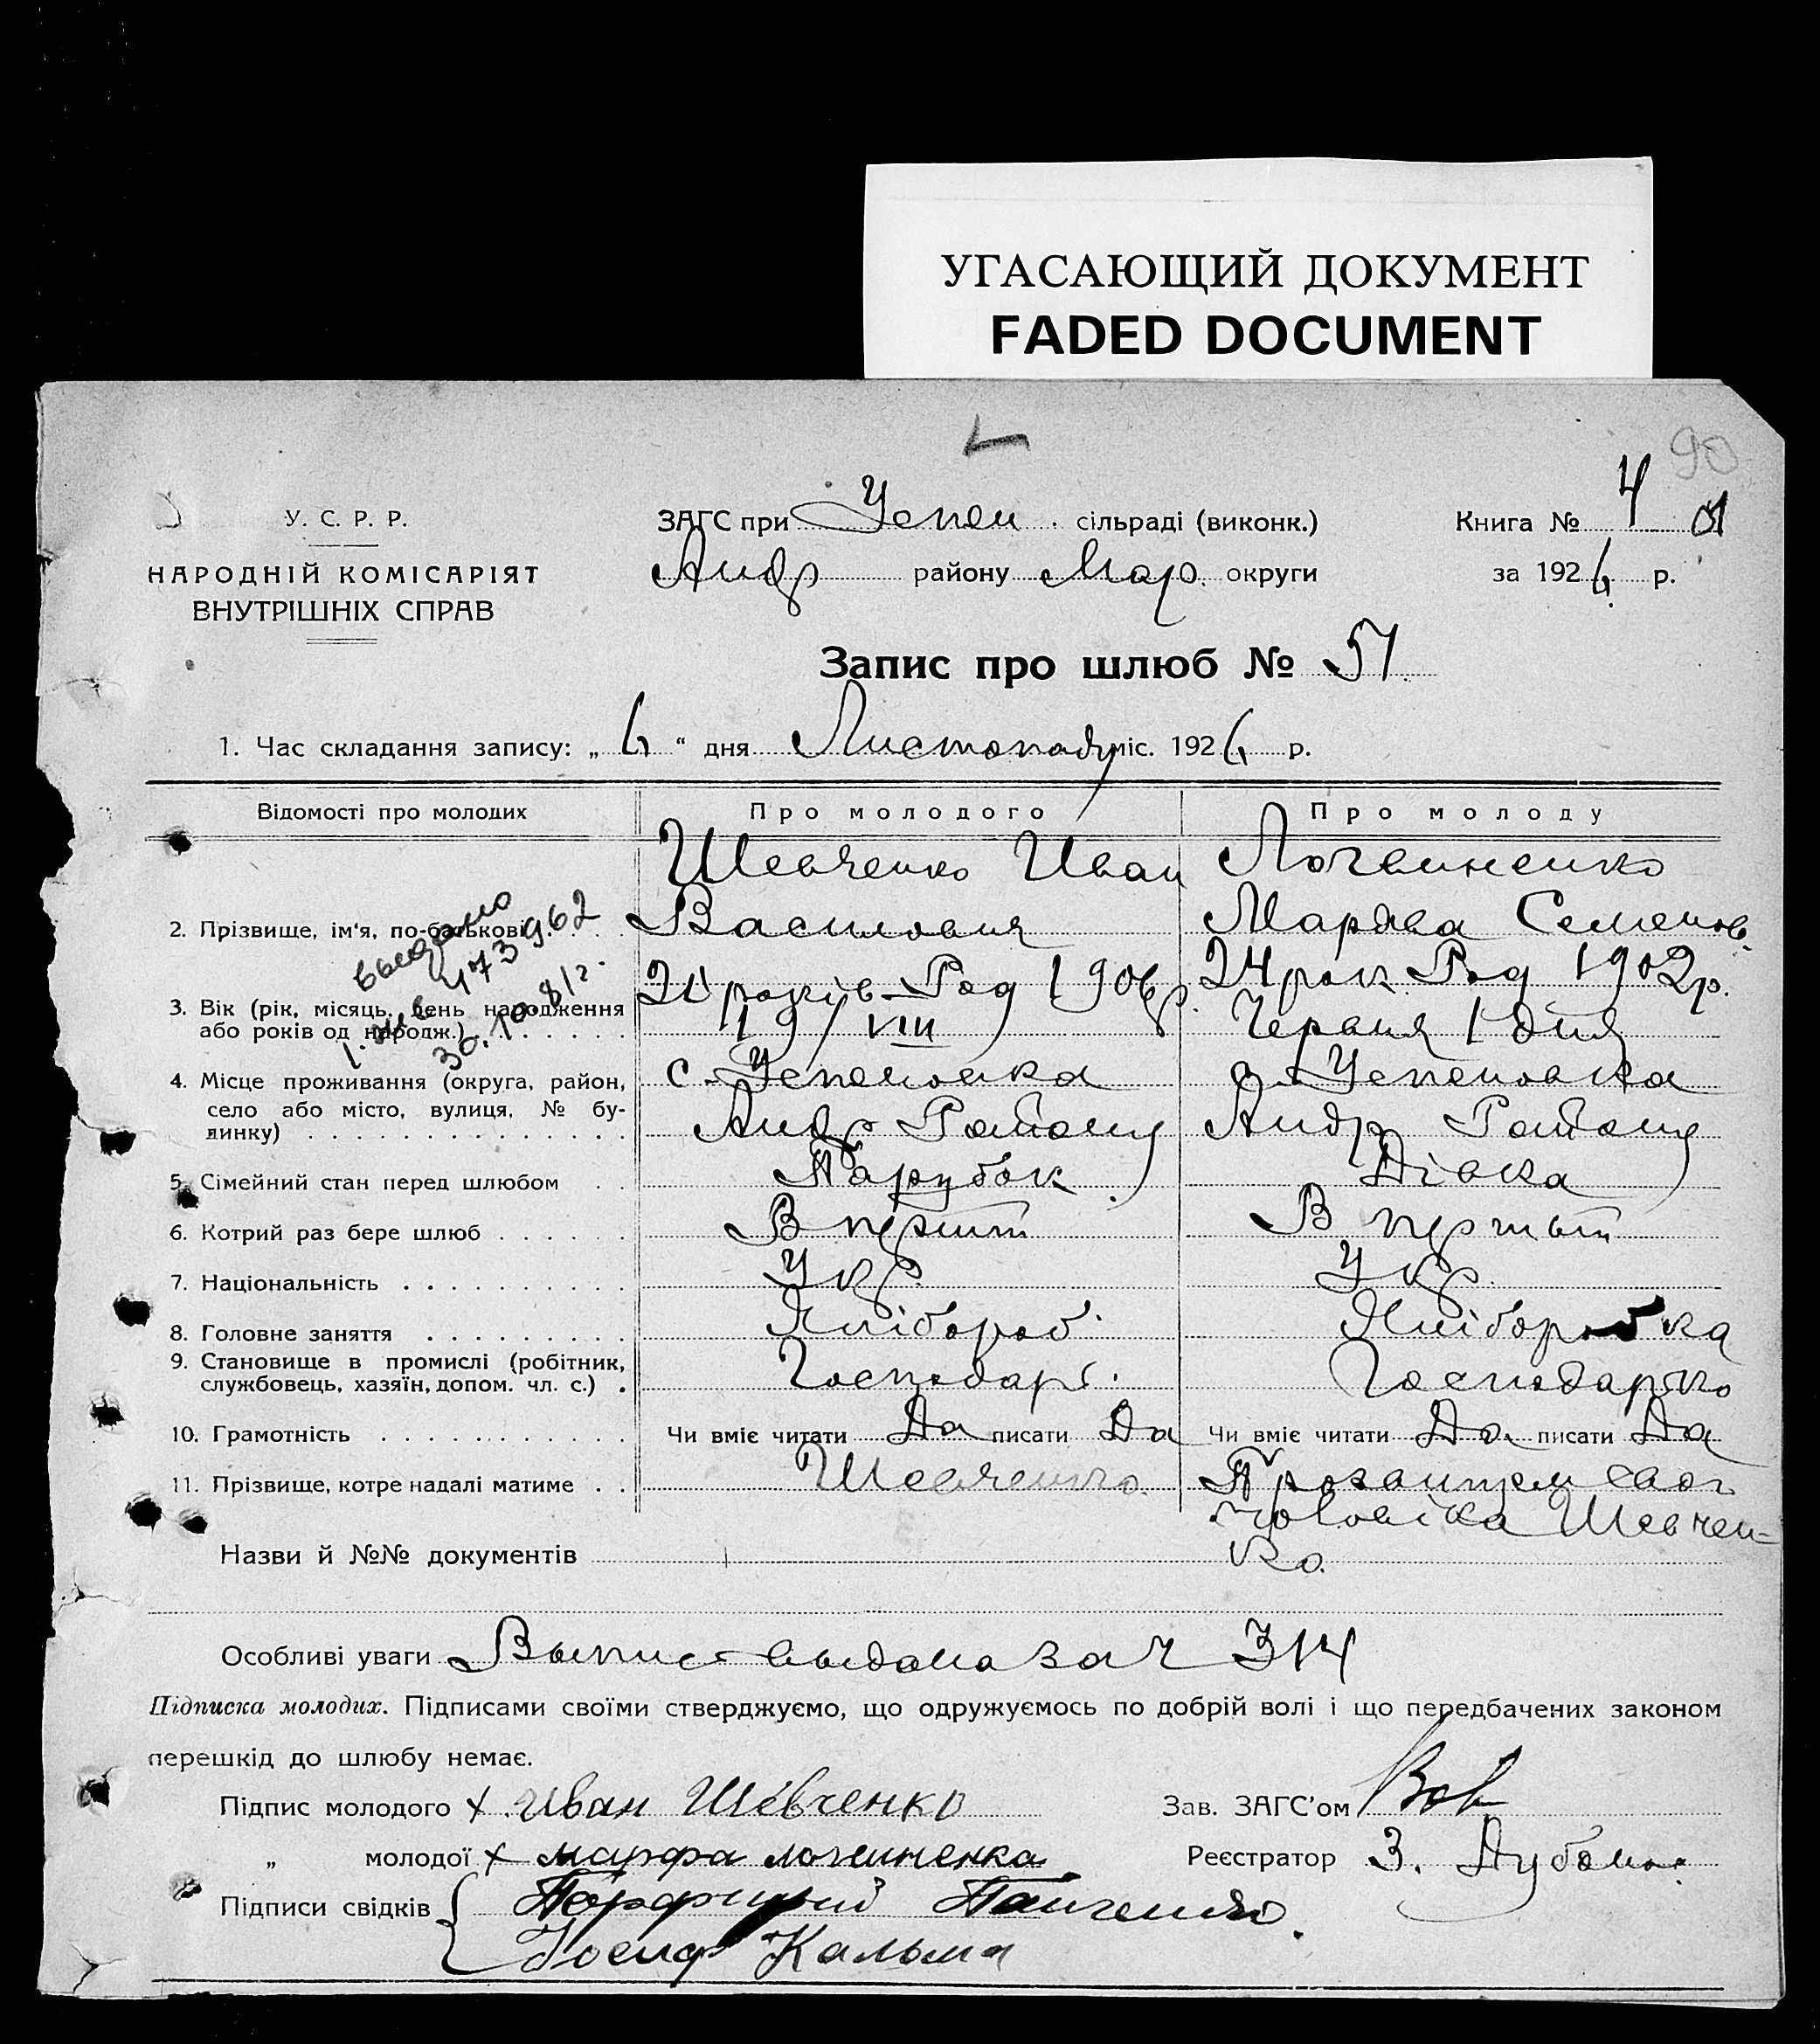 УГАСАЮЩИЙ ДОКУМЕНТ
FADED DOCUMENT
90
У. С. Р. Р.
НАРОДНІЙ КОМІСАРІЯТ
ВНУТРІШНІХ СПРАВ
ЗАГС при Успен. сільраді (виконк.)
Андр району Мар. округи
Книга № 4
за 1926 р.
Запис про шлюб № 51
1. Час складання запису: „ 6 “ дня Листопаду міс. 1926 р.
Відомості про молодих
Про молодого
Про молоду
2. Прізвище, ім'я, по-батькові
Шевченко Иван
Василович
Марфа Семенов.
3. Вік (рік, місяць, день народження
або років од народж.)
21 років Род 1906 р.
19/VIII
24 рок Род 1902 р.
Червня 1 дня
выдано
473962
30.10.81г.
4. Місце проживання (округа, район,
село або місто, вулиця, № бу-
динку)
с. Успеновка
Андр Району
с. Успеновка
Андр Району
5. Сімейний стан перед шлюбом
Парубок
Дівка
6. Котрий раз бере шлюб
В перший
В першый
7. Національність
Укр.
Укр.
8. Головне заняття
Хлібороб.
Хліборобка
9. Становище в промислі (робітник,
службовець, хазяїн, допом. чл. с.)
Господарь.
Господарка
10. Грамотність
Чи вміє читати Да писати Да
Чи вміє читати Да писати Да
11. Прізвище, котре надалі матиме
Шевченко
чоловіка Шевчен-
ко.
Назви й №№ документів
Особливі уваги Выпис выдана за ч 314
Підписка молодих. Підписами своїми стверджуємо, що одружуємось по добрій волі і що передбачених законом
перешкід до шлюбу немає.
Підпис молодого х Иван Шевченко
Зав. ЗАГС'ом
„ молодої х марфа
Реєстратор З.
Підписи свідків
Порфирий Панченко.
Иосиф Кальма